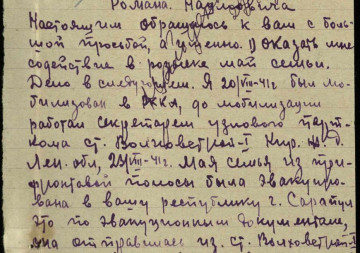 Романа Надеждовича
Настоящим обращаюсь к вам с боль-
шой просьбой, а именно: 1) Оказать мне
содействие в розыске мой семьи.
Дело в следующем. Я 20/VIII-41г. был мо-
билизован в РККА, до мобилизации
работал секретарем узлового парт.
кома ст. Волховстрой-I Кир. ж. д.
Лен. обл, 29/VIII-41г. Мая семья из при-
фронтовой полосы была эвакуиро-
вана в вашу республику г. Сарапул
это по эвакуационным документам,
она отправилась из ст. Волховстрой-I